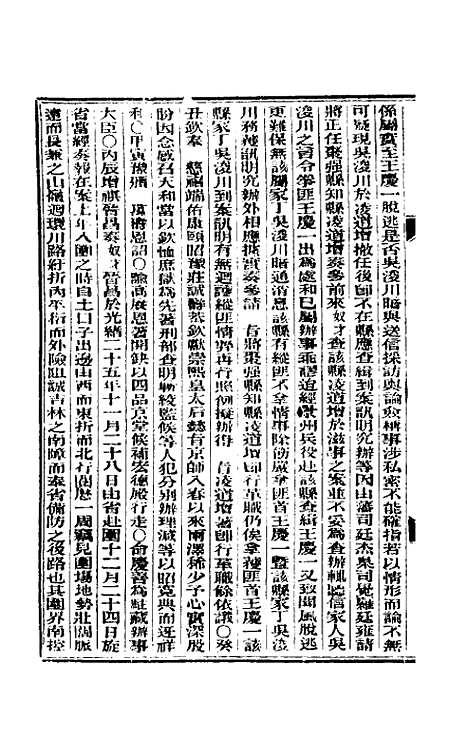 係屬實至王慶一脫逃是否吳浚川暗與送信採訪輿論愈稱事涉私密不能確指若以情形而論不無
可疑現吳浚川於凌道增撤任後卽不在縣應查緝到案訊明究辦等因由藩司廷杰臬司覺羅廷雍請
將正任棗強縣知縣凌道增奏參前來奴才查該縣凌道增於滋事之案並不妥為查辦輒聽信家人吳
浚川之言令拳匪王慶一出為處和已屬辦事乖謬迨經冀州兵役赴該縣查緝王慶一又致聞風脫逃
更難保無該屬家丁吳浚川暗通消息該縣有縱匪不拿情事除飭嚴拿匪首王慶一暨該縣家丁吳浚
川務獲訊明究辦外相應據實奏參請 旨將棗強縣知縣凌道增卽行革職仍俟拿獲匪首王慶一該
縣家丁吳浚川到案訊明有無迴護縱匪情弊再行照例擬辦得 旨凌道增著卽行革職餘依議〇癸
丑欽奉 慈禧端佑康頤昭豫莊誠壽恭欽獻崇熙皇太后懿旨京師入春以來雨澤稀少予心實深殷
盼因念感召天和當以欽恤庶獄為先著刑部查明斬絞監候等人犯分別辦理減等以昭克典而迓祥
和〇甲寅
大臣〇丙辰增祺晉昌奏奴才晉昌於光緒二十五年十一月二十八日由省赴圍十二月二十四日旋
省當經奏報在案上年入圍之時自土口子出邊由西而東折而北行閱歷一周竊見圍場地勢壯闊脈
遠而長兼之山嶺迴環川路紆折內平衍而外險阻誠吉林之南障而奉省備防之後路也其圍界南控